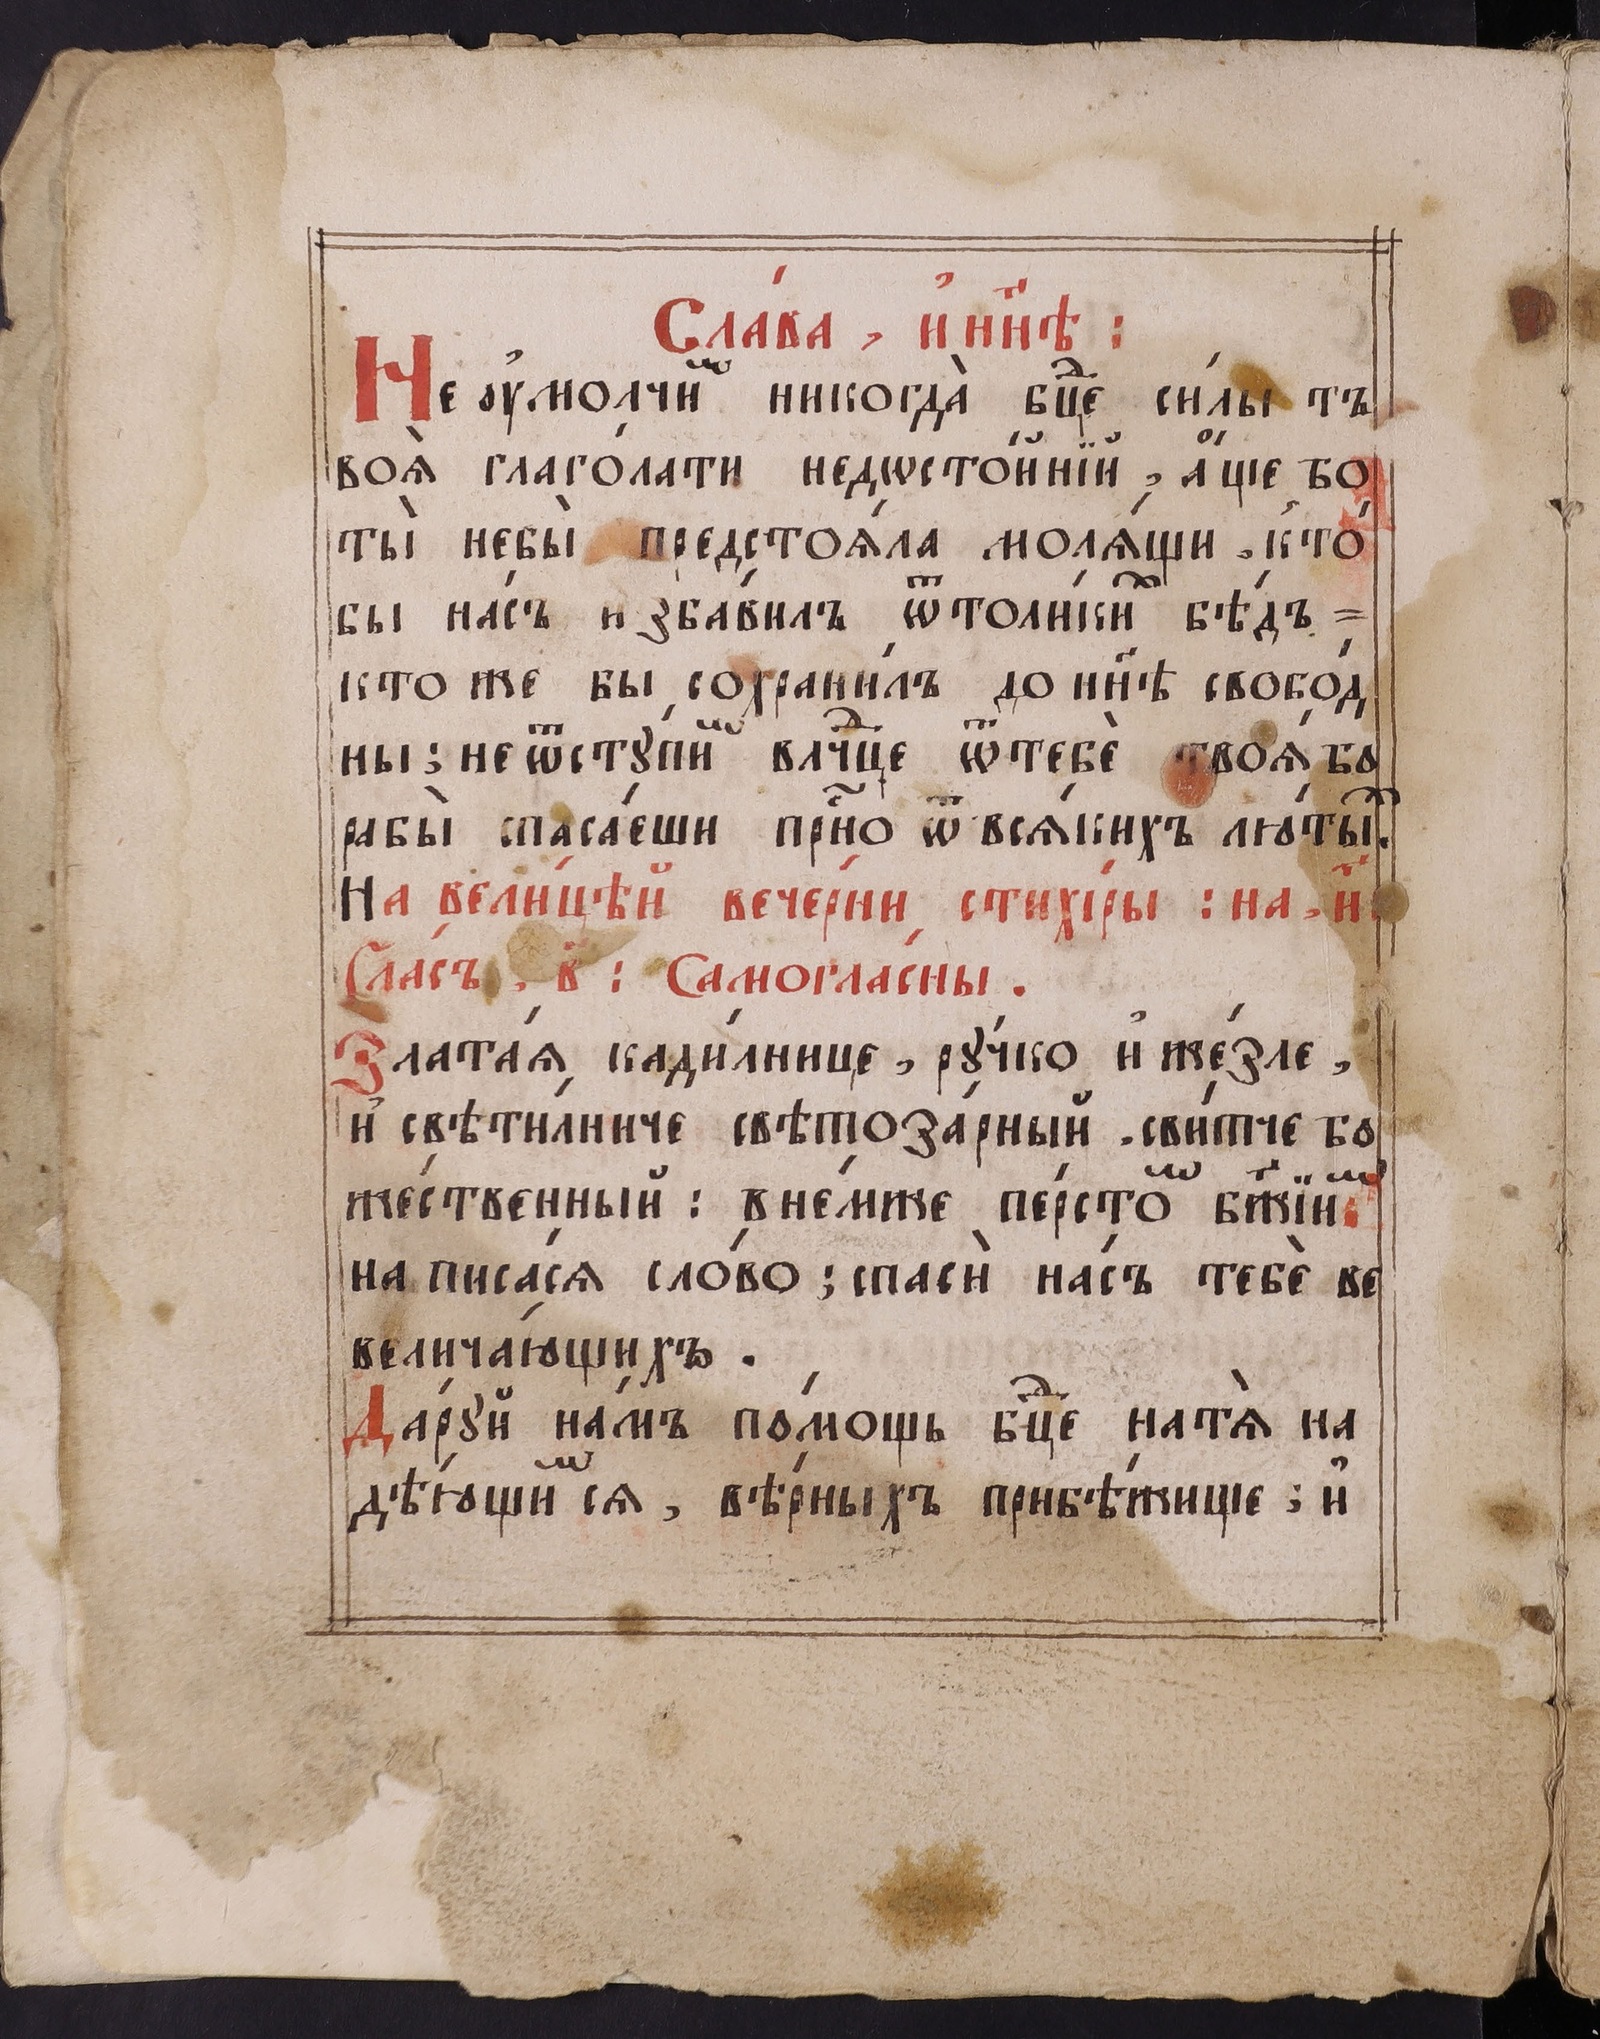 Сла́ва , и҆ нн҃ѣ :
Не ѹ҆молчи́мъ никогда̀ бц҃де си́лы тъ
воя̀ глаго́лати недѡсто́йнїй , а҆́ще бо
ты̀ небы̀ предстоѧ́ла молѧ́щи , кто́
бы на́съ избавилъ ѿтоли́ки́хъ бѣ́дъ =
кто же бы сохрани́лъ до нн҃ѣ свобо́д
ны ; не ѿстꙋпи́мъ влчⷣце ѿтебѐ твоѧ́ бо
рабы̀ спаса́еши прⷭ҇но ѿ всѧ́кихъ лю́тыхъ.
На вели́цѣй вече́рни стихі́ры : на , и҃
Гла́съ , в҃ : Самогла́сны .
Злата́ѧ кади́лнице , рꙋ́чко и҆ же́зле ,
и҆ свѣти́лниче свѣтоза́рный . сви́тче бо
же́ственный : в не́мже пе́рстомъ бж҃їимъ
на писа́сѧ сло́во ; спасѝ на́съ тебѐ ве
велича́ющихъ .
Да́рꙋй на́мъ по́мощь бцⷣе натѧ̀ на
дѣ́ющимсѧ , вѣ́рныхъ прибѣ́жище ; и҆